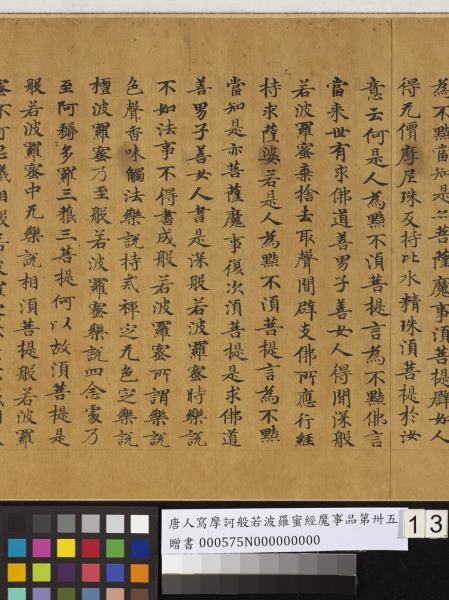 為不黠當知是亦菩薩魔事須菩提辟如人
得无價摩尼珠反持比水精珠須菩提於汝
意云何是人為黠不須菩提言為不黠佛言
當来世有求佛道善男子善女人得聞深般
若波羅蜜棄捨去取聲聞辟支佛所應行經
持求薩婆若是人為黠不須菩提言為不黠
當知是亦菩薩魔事復次須菩提是求佛道
善男子善女人書是深般若波羅蜜時樂說
不如法事不得書成般若波羅蜜所謂樂說
色聲香味觸法樂說持戒禪定无色定樂說
檀波羅蜜乃至般若波羅蜜樂說四念處乃
至阿耨多羅三藐三菩提何以故須菩提是
般若波羅蜜中无樂說相須菩提般若波羅
唐人寫摩訶般若波羅蜜經魔事品第卅五
贈書 000575N000000000
13